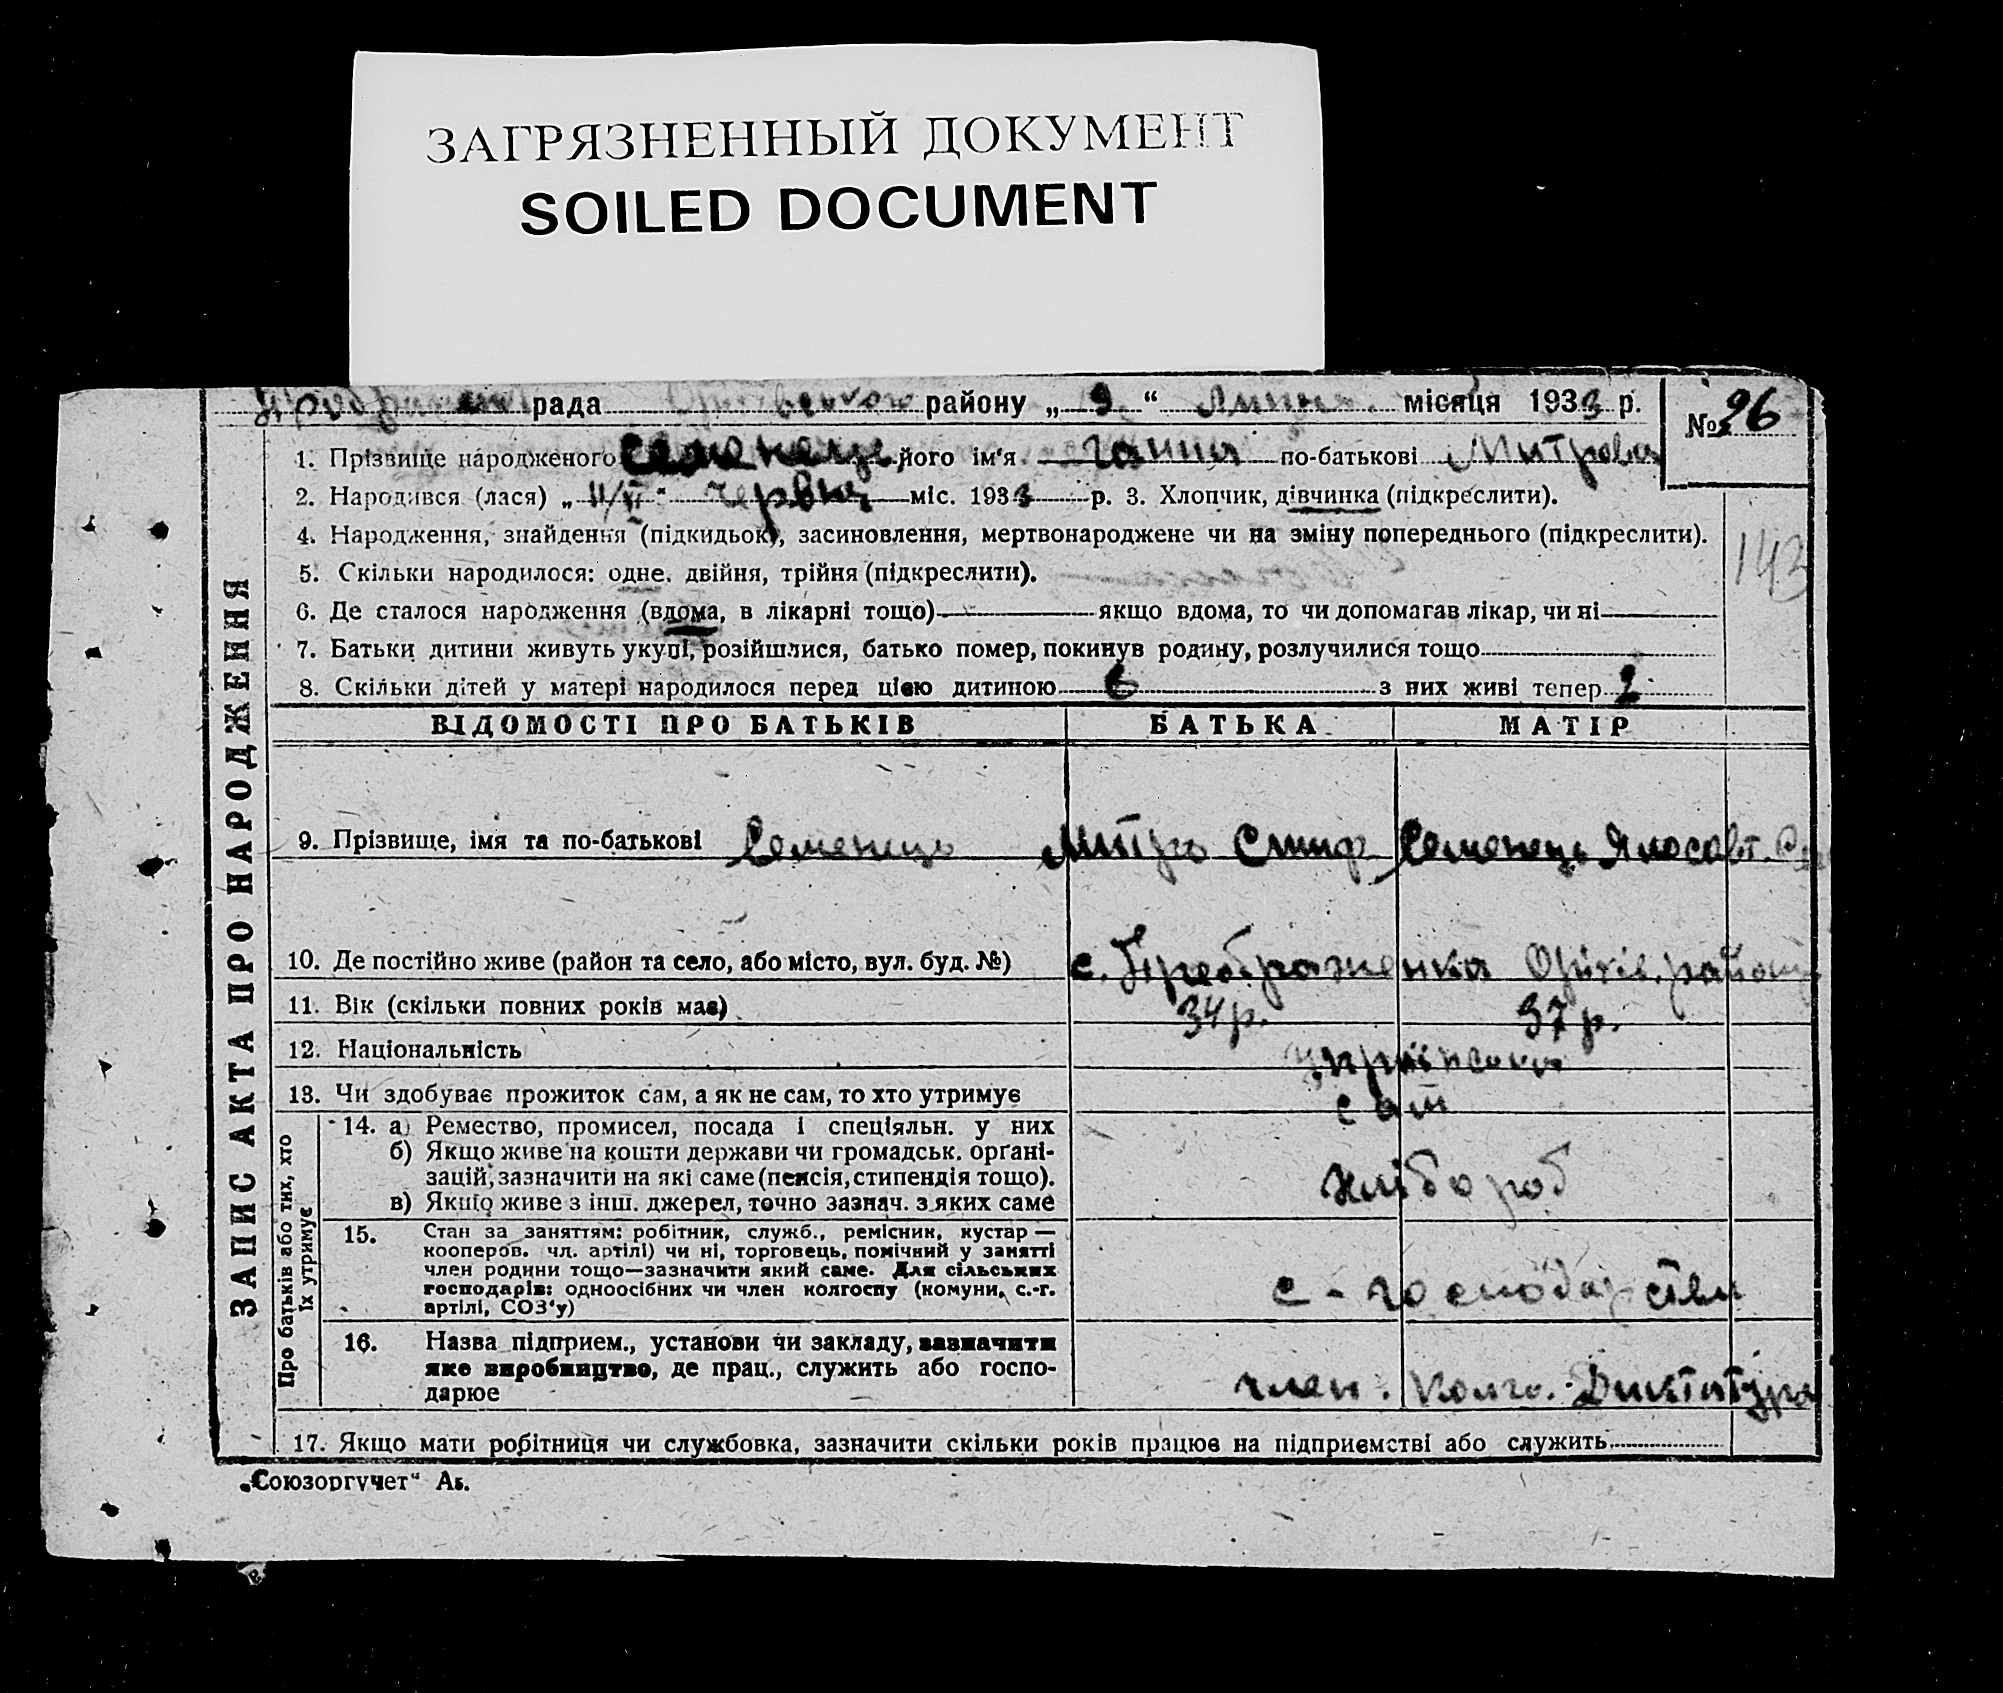 ЗАГРЯЗНЕННЫЙ ДОКУМЕНТ
SOILED DOCUMENT
рада району „ 9 “ Липня місяця 1933 р.
№ 26
1. Прізвище народженого Семенець його ім'я Ганна по-батькові Митрова
2. Народився (лася) „ 11/VI “ червня міс. 1933 р. 3. Хлопчик, дівчинка (підкреслити).
4. Народження, знайдення (підкидьок), засиновлення, мертвонароджене чи на зміну попереднього (підкреслити).
143
5. Скільки народилося: одне, двійня, трійня (підкреслити).
6. Де сталося народження (вдома, в лікарні тощо) якщо вдома, то чи допомагав лікар, чи ні
7. Батьки дитини живуть укупі, розійшлися, батько помер, покинув родину, розлучилися тощо
8. Скільки дітей у матері народилося перед цією дитиною 6 з них живі тепер 2
ЗАПИС АКТА ПРО НАРОДЖЕННЯ
ВІДОМОСТІ ПРО БАТЬКІВ БАТЬКА МАТІР
9. Прізвище, імя та по-батькові Семенець Митро Семенець
10. Де постійно живе (район та село, або місто, вул. буд. №) с. Преображенка Оріхів. району
11. Вік (скільки повних років має) 34 р. 37 р.
12. Національність українська
13. Чи здобуває прожиток сам, а як не сам, то хто утримує сам
Про батьків або тих, хто їх утримує
14. а) Ремество, промисел, посада і спеціяльн. у них
б) Якщо живе на кошти держави чи громадськ. орґані-
зацій, зазначити на які саме (пенсія, стипендія тощо).
в) Якщо живе з інш. джерел, точно зазнач. з яких саме
хлібороб
15. Стан за заняттям: робітник, служб., ремісник, кустар —
кооперов. чл. артілі) чи ні, торговець, помічний у занятті
член родини тощо—зазначити який саме. Для сільських
господарів: одноосібних чи член колгоспу (комуни, с.-г.
артілі, СОЗ'у)
с-господарстви
16. Назва підприєм., установи чи закладу, зазначити
яке виробництво, де прац., служить або госпо-
дарює
член. колго. Диктатура
17. Якщо мати робітниця чи службовка, зазначити скільки років працює на підприємстві або служить
„Союзоргучет“ Аб.